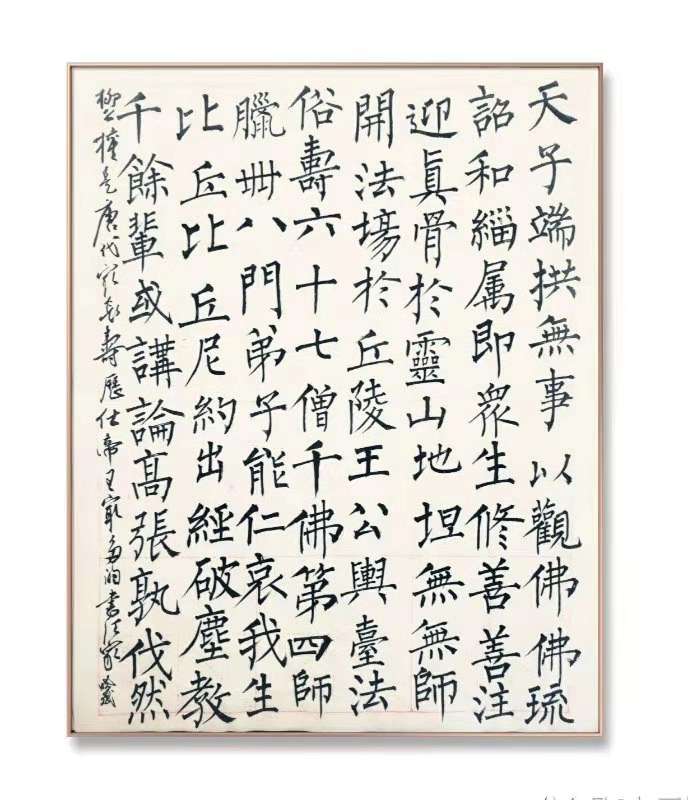 天子端拱無事以觀佛佛琉
詔和緇属即衆生修善善注
迎眞骨於靈山地坦無無師
開法場於丘陵王公輿臺法
俗壽六十七僧千佛第四師
臘卌八門弟子能仁哀我生
比丘比丘尼約出經破塵教
千餘輩或講論髙張孰伐然
柳公權是唐代最長壽歷仕帝王最多的書法家